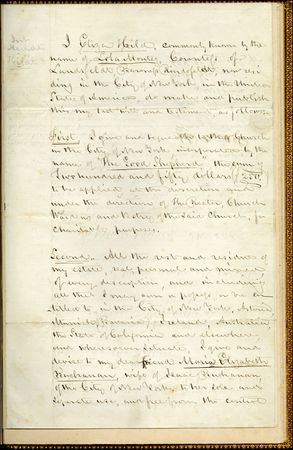 I Eliza Gilbert commonly known by the
name of Lola Montez, Countess of
Landsfeldt Baroness Rosenthal, now resi
ding in the City of New York, in the United
States of America do make and publish
this my last will and testament, as follows:
First. I give and bequeath to the Church
in the City of New York incorporated by the
name of "The Good Shepherd" the sum of
Two hundred and fifty dollars ($250)
to be applied at the discretion and
under the direction of the Rector, Church
Wardens and Vestry of the said Church, for
charitable purposes.
Second. All the rest and residue of
my estate, real, personal and mixed
of every description, and including
all that I may own or possess, or be en
titled to, in the City of New York,
Munich, Bavaria, Ireland, Australia,
the State of California and elsewhere
and wheresoever situate I give and
devise to my dear friend Maria Elizabeth
Buchanan, wife of Isaac Buchanan
of the City of New York, to her sole and
separate use, and free from the control